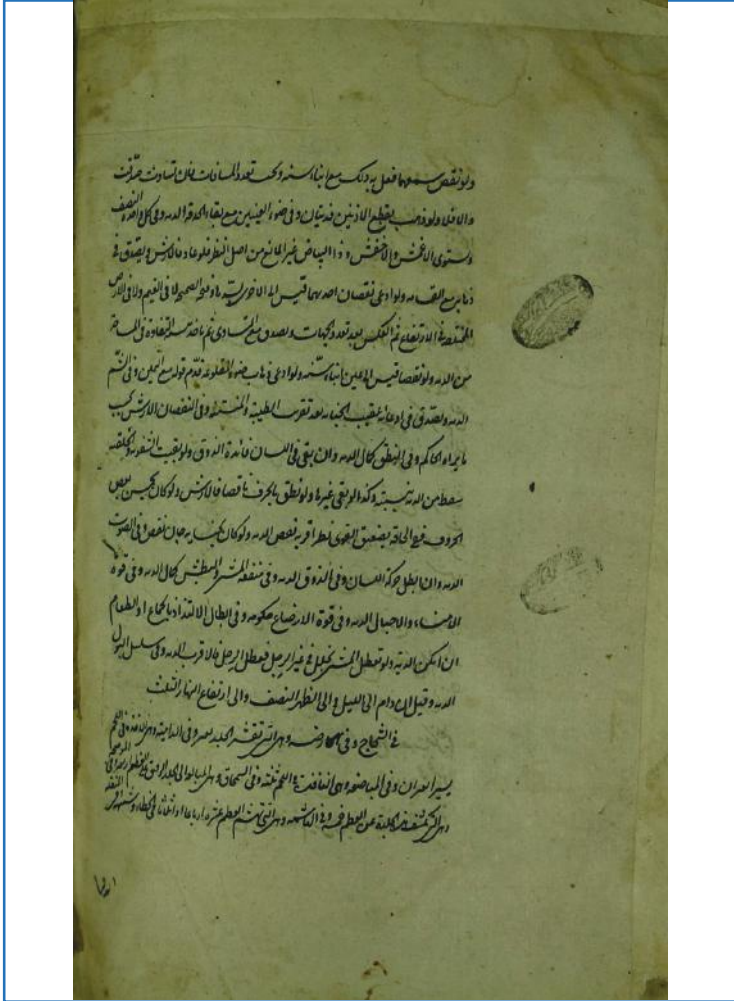 ولو نقص سمعهما فعل به ذلك مع ابناء سنه وتجب تعدد المسافات فان تساوت صدقت
والا فلا ولو ذهب بقطع الاذنين فديتان وفى ضوء العينين مع بقاء الحدقة الديه وفى كل واحده النصف
ويستوى الاعمش والاخفش وذا البياض غير المانع من اصل النظر فلو عاد فالارش ويصدق فى
ذهابه مع القسامه ولو ادعى نقصان احدهما قيس الى الاخرى وفتح الصحيحة لا فى الغيم ولا فى الارض
المختلفة فى الارتفاع ثم العكس بعد تعدد الجهات ويصدق مع التساوى ثم ياخذ التفاوت فى المساحة
من الديه ولو نقصا قيس الى عين ابناء سنه ولو ادعى ذهاب ضوء المقلوعة قدم قوله مع اليمين وفى الشم
الديه ويصدق فى ادعائه عقيب الجنايه بعد تقريب الطيبة والمنتنة وفى النقصان الارش بحسب
ما يراه الحاكم وفى النطق كمال الديه وان بقى فى اللسان فائدة الذوق ولو بقيت الشفوية والحلقية
سقط من الدية بنسبته وكذا لو بقى غيرها ولو نطق بالحرف ناقصا فالارش ولو كان يحسن بعض
الحروف فالحاقه بضعيف القوى نظر اقربه نقص الديه ولو كان بجنايه جان نقص وفى الصوت
الديه وان ابطل حركة اللسان وفى الذوق الديه وفى منفعة المشى والبطش كمال الديه وفى قوة
الامناء والاحبال الديه وفى قوة الارضاع حكومه وفى ابطال الالتذاذ بالجماع او الطعام
ان امكن الدية ولو تعطل المشى بخلل فى غير الرجل فعطل الرجل فالاقرب الديه وفى سلسل البول
الديه وقيل ان دام الى الليل والى الظهر النصف والى ارتفاع النهار الثلث
فى الشجاج وفى الحارصه وهى التى تقشر الجلد بعير وفى الدامية وهى النافذة فى اللحم
يسيرا بعيران وفى المتلاحمه وهى النافذة فى اللحم ثلثه وفى السمحاق وهى البالغة الى الجلد الرقيق على العظم اربعة وفى الموضحه
وهى التى تكشف الجلدة عن العظم خمسه وفى الهاشمه وهى التى تهشم العظم عشره ارباعا او اثلاثا فى الخطاء وشبهه وفى المنقله